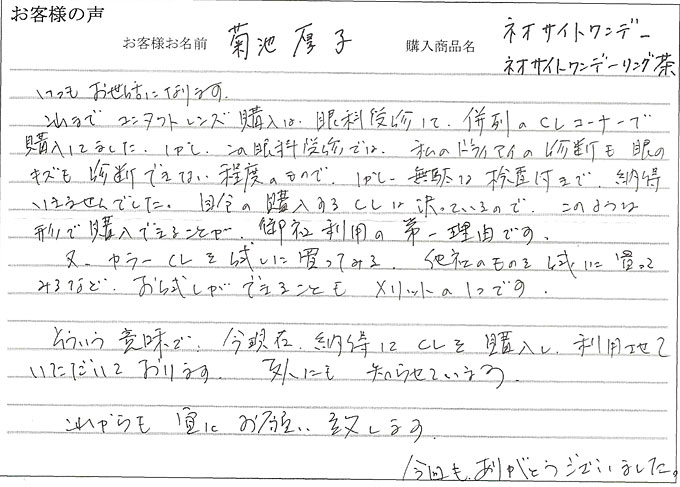 お客様の声
お客様お名前 菊池 厚子 購入商品名 ネオサイトワンデー
ネオサイトワンデーリング茶
いつも お世話になります。
これまで コンタクトレンズ購入は、眼科受診して、併列のCLコーナーで
購入してました。しかし、この眼科受診では、私のドライアイの診断も 眼の
キズも 診断できない 程度のもので、しかし 無駄な 検査付まで、納得
いきませんでした。自分の購入するCLは 決っているので、このような
形で購入できることが、御社利用の第一理由です。
又、カラーCLを試しに買ってみる、他社のものを試に買って
みるなど、お試しができることも メリットの1つです。
そういう意味で、今現在、納得してCLを購入し、利用させて
いただいております。友人にも 知らせています。
これからも 宜しくお願い致します。
今回も、ありがとうございました。